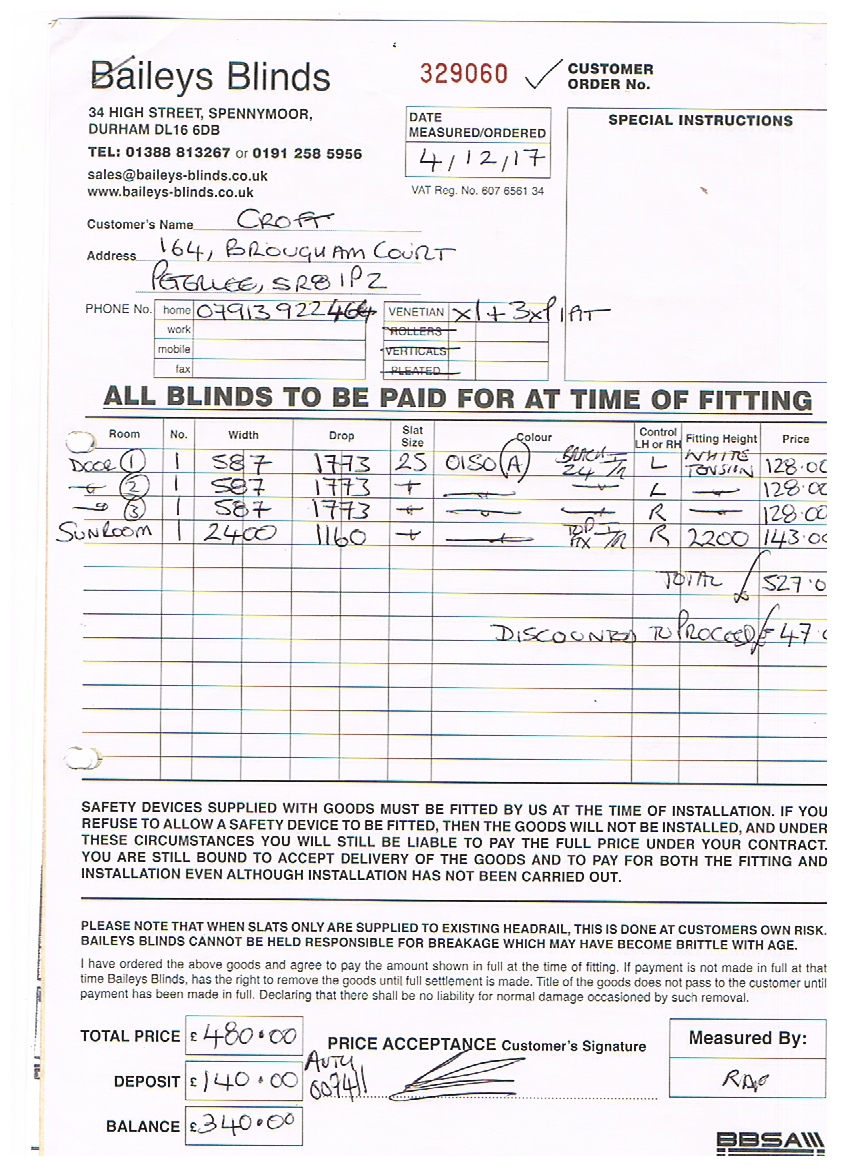 Baileys Blinds
329060
CUSTOMER
ORDER No.
34 HIGH STREET, SPENNYMOOR,
DURHAM DL16 6DB
TEL: 01388 813267 or 0191 258 5956
sales@baileys-blinds.co.uk
www.baileys-blinds.co.uk
DATE
MEASURED/ORDERED
4/12/17
VAT Reg. No. 607 6561 34
SPECIAL INSTRUCTIONS
Customer's Name CROFT
Address 164, BROUGHAM COURT
PETERLEE, SR8 1PZ
PHONE No. home 07913922464
work
mobile
fax
VENETIAN x1 + 3xP/FAT
ROLLERS
VERTICALS
PLEATED
ALL BLINDS TO BE PAID FOR AT TIME OF FITTING
Room No. Width Drop Slat Size Colour Control LH or RH Fitting Height Price
DOOR 1 1 587 1773 25 0150 (A) 24 L WHITE TENSION 128.00
2 1 587 1773 L 128.00
3 1 587 1773 R 128.00
SUNROOM 1 2400 1160 R 2200 143.00
TOTAL £ 527.0
DISCOUNTED TO PROCEED £ 47.0
SAFETY DEVICES SUPPLIED WITH GOODS MUST BE FITTED BY US AT THE TIME OF INSTALLATION. IF YOU
REFUSE TO ALLOW A SAFETY DEVICE TO BE FITTED, THEN THE GOODS WILL NOT BE INSTALLED, AND UNDER
THESE CIRCUMSTANCES YOU WILL STILL BE LIABLE TO PAY THE FULL PRICE UNDER YOUR CONTRACT.
YOU ARE STILL BOUND TO ACCEPT DELIVERY OF THE GOODS AND TO PAY FOR BOTH THE FITTING AND
INSTALLATION EVEN ALTHOUGH INSTALLATION HAS NOT BEEN CARRIED OUT.
PLEASE NOTE THAT WHEN SLATS ONLY ARE SUPPLIED TO EXISTING HEADRAIL, THIS IS DONE AT CUSTOMERS OWN RISK.
BAILEYS BLINDS CANNOT BE HELD RESPONSIBLE FOR BREAKAGE WHICH MAY HAVE BECOME BRITTLE WITH AGE.
I have ordered the above goods and agree to pay the amount shown in full at the time of fitting. If payment is not made in full at that
time Baileys Blinds, has the right to remove the goods until full settlement is made. Title of the goods does not pass to the customer until
payment has been made in full. Declaring that there shall be no liability for normal damage occasioned by such removal.
TOTAL PRICE £480.00
PRICE ACCEPTANCE Customer's Signature
Measured By:
DEPOSIT £140.00
AUTH
007411
BALANCE £340.00
BBSA